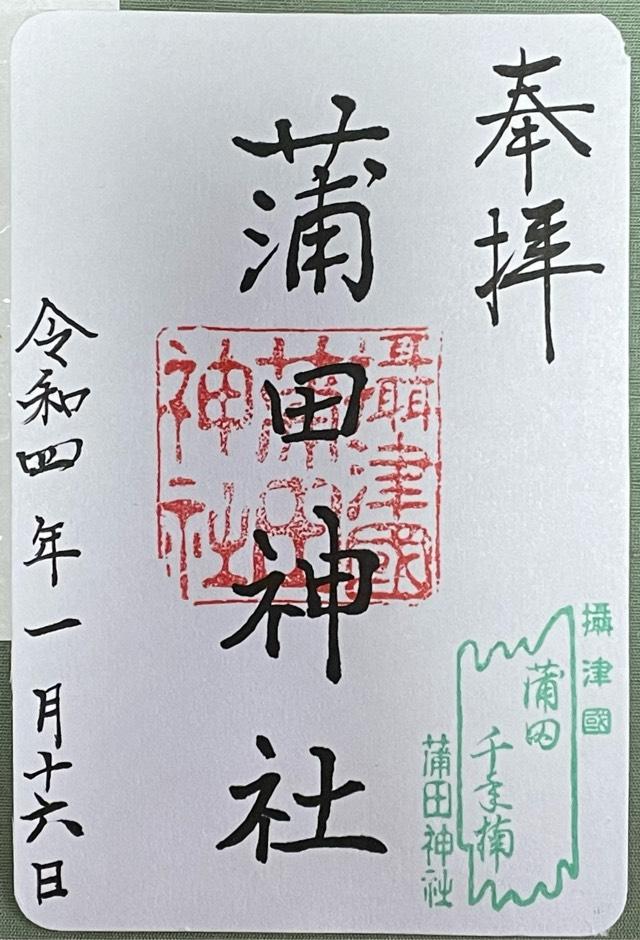 奉拝
蒲田神社
攝津國
蒲田
神社
令和四年一月十六日
攝津國
蒲田
千年楠
蒲田神社